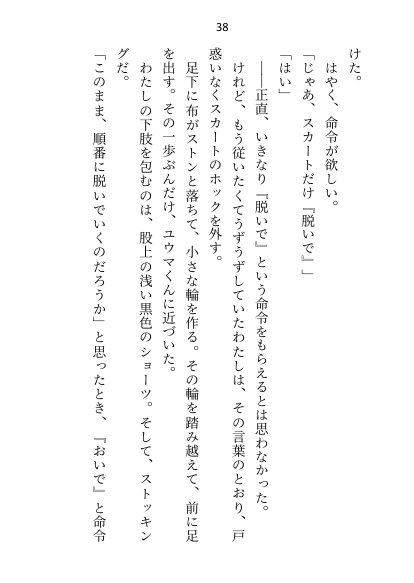 38
けた。
はやく、命令が欲しい。
「じゃあ、スカートだけ『脱いで』」
「はい」
――正直、いきなり『脱いで』という命令をもらえるとは思わなかった。
けれど、もう従いたくてうずうずしていたわたしは、その言葉のとおり、戸
惑いなくスカートのホックを外す。
足下に布がストンと落ちて、小さな輪を作る。その輪を踏み越えて、前に足
を出す。その一歩ぶんだけ、ユウマくんに近づいた。
わたしの下肢を包むのは、股上の浅い黒色のショーツ。そして、ストッキン
グだ。
「このまま、順番に脱いでいくのだろうか」と思ったとき、『おいで』と命令